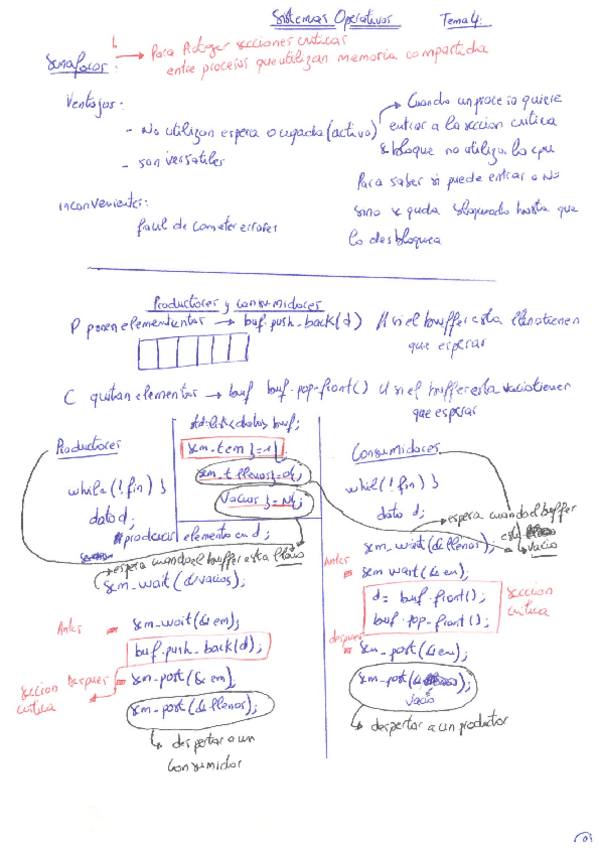 Sistemas Operativos Tema 4:
Semaforos: → Para Proteger secciones criticas
entre procesos que utilizan memoria compartida
Ventajas:
- No utilizan espera ocupada (activa)
- son versatiles
Cuando un proceso quiere
entrar a la seccion critica
se bloque no utiliza la cpu
Para saber si puede entrar o No
sino se queda bloqueado hasta que
lo desbloquea
inconvenientes:
facil de cometer errores
Productores y consumidores
P ponen elementos → buf.push_back(d) // si el buffer esta lleno tienen
que esperar
C quitan elementos → buf buf.pop_front() // si el buffer esta vacio tienen
que esperar
Productores
while(!fin) }
dato d;
#producir elemento en d;
espera cuando el buffer esta lleno
sem_wait(&vacios);
Antes = sem_wait(&em);
buf.push_back(d);
Despues = sem_post(&em);
seccion
critica
sem_post(&llenos);
↳ despertar a un
consumidor
std::list<datos> buf;
sem_t em }=1{;
sem_t llenos}=0{;
vacios }=N{;
Consumidores
while(!fin) }
dato d;
→ espera cuando el buffer
esta
vacio
sem_wait(&llenos);
Antes = sem_wait(&em);
d = buf.front();
buf.pop_front();
seccion
critica
despues = sem_post(&em);
sem_post(& );
vacio
↳ despertar a un productor